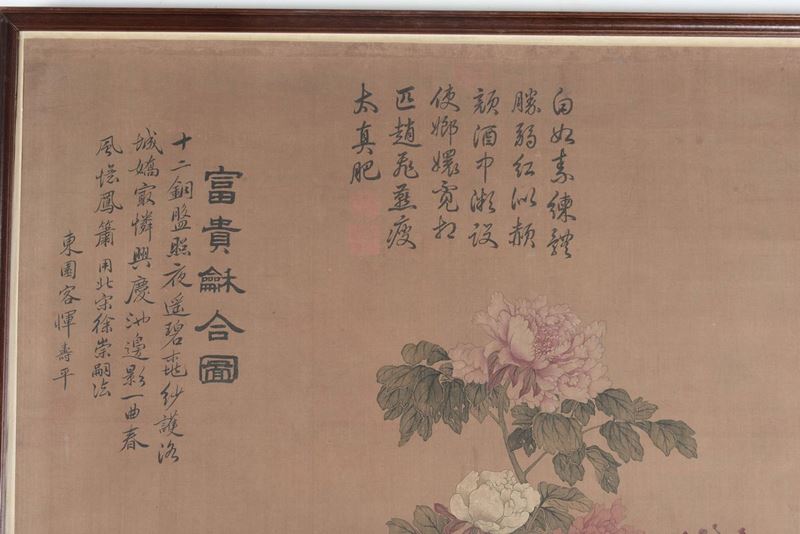 白如素練體
勝弱紅似頳
顏酒中潮設
使嫏嬛寬相
匹趙飛燕瘦
太真肥
富貴龢合圖
十二銅盤照夜遥碧桃紗護洛
城嬌最憐興慶池邊影一曲春
風憶鳳簫用北宋徐崇嗣法
東園客惲壽平